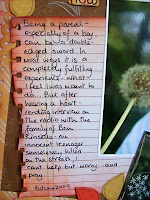 Being a parent -
especially of a boy
can be a double
edged sword. In
most ways it is a
completely fulfilling
experience - what
I feel I was meant to
do... But after
hearing a heart-
rending interview on
the radio with the
family of Ben
Kinsella - an
innocent teenager
senselessly killed
on the streets, I
can't help but worry and
pray.
Autumn 2009